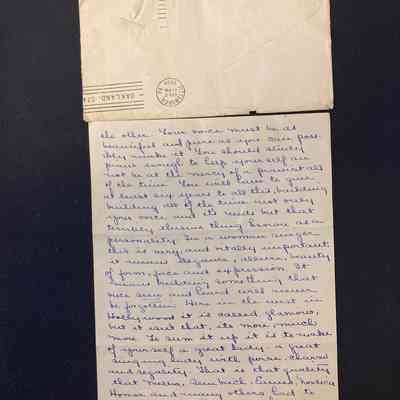 OAKLAND, CA
the other. Your voice must be as
beautiful and pure as you can poss-
ibly make it. You should study
piano enough to keep yourself and
not be at the mercy of a pianist all
of the time. You will have to give
at least six years to all this, building
building all of the time not only
your voice and its needs but that
terribly elusive thing known as a
personality. In a woman singer
this is very, and vitally important,
it means elegance, allure, beauty
of form, face and expression. It
means building something that
once seen and heard will never
be forgotten. Here in the west in
Hollywood it is called glamour,
but it isn't that, its more, much
more. To sum it up it is to make
of yourself a great lady, a great
singing lady with poise, charm
and regality. That is that quality
that Melba, Sembrich, Eames, Nordica
Homer and many others had to